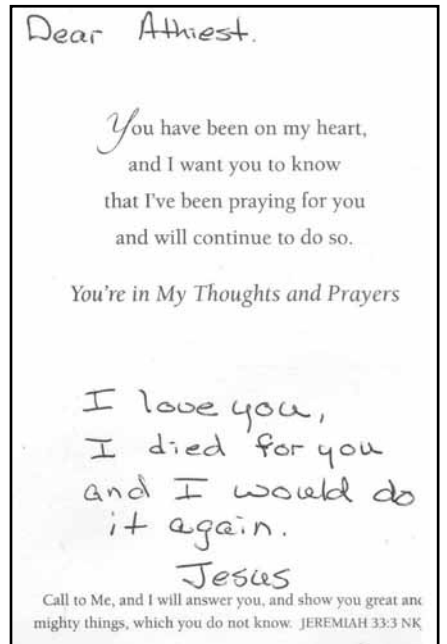 Dear Athiest.
You have been on my heart,
and I want you to know
that I've been praying for you
and will continue to do so.
You're in My Thoughts and Prayers
I love you,
I died for you
and I would do
it again.
Jesus
Call to Me, and I will answer you, and show you great and
mighty things, which you do not know. JEREMIAH 33:3 NK